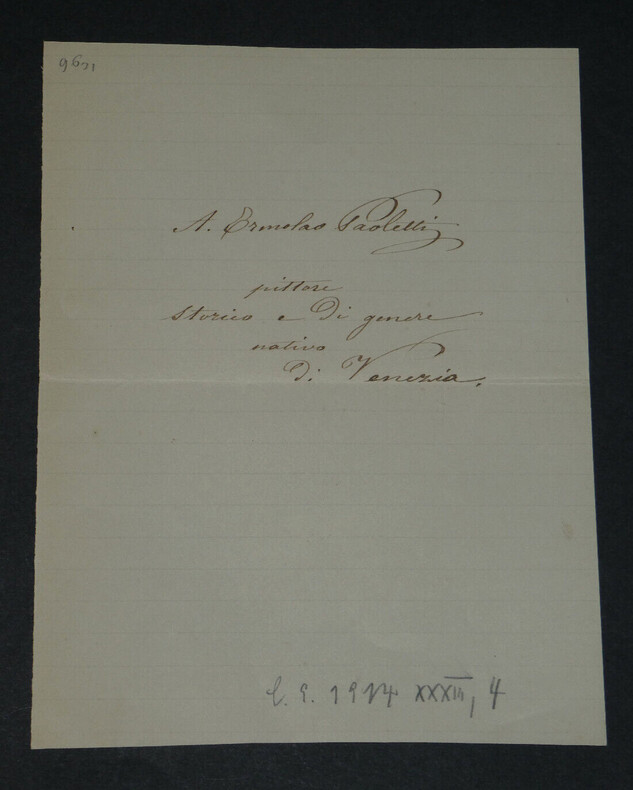 A. Ermolao Paoletti
pittore
storico e di genere
nativo
di Venezia.
1914 XXXIII, 4